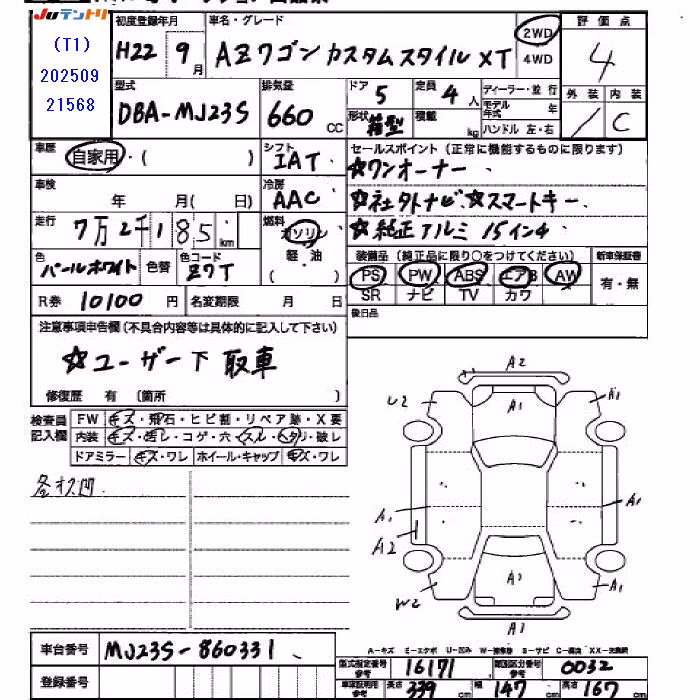 Juテントリ
(T1)
202509
21568
初度登録年月
H22 9月
車名・グレード
AZワゴン カスタムスタイル XT
2WD
4WD
評価点
4
外装 内装
／ C
型式
DBA-MJ23S
排気量
660 CC
ドア
5
定員
4人
形状
箱型
積載
kg
ディーラー・並行
モデル年式 年
ハンドル 左・右
車歴
自家用・( )
シフト
IAT
セールスポイント (正常に機能するものに限ります)
☆ワンオーナー
☆社外ナビ ☆スマートキー
☆純正アルミ 15インチ
車検
年 月( 日)
冷房
AAC
走行
7万2千185 km
燃料
ガソリン
軽・油
( )
色
パールホワイト
色替
色コード
Z7T
装備品 (純正品に限り○をつけてください)
PS PW ABS エアB AW
SR ナビ TV カワ
新車保証書
有・無
R券 10100 円
名変期限 月 日
後日品
注意事項申告欄(不具合内容等は具体的に記入して下さい)
☆ユーザー下取車
修復歴 有 (箇所 )
検査員記入欄
FW キズ・飛石・ヒビ割・リペア跡・X要
内装 キズ・汚レ・コゲ・穴・スレ・ヘタリ・破レ
ドアミラー キズ・ワレ ホイール・キャップ キズ・ワレ
A2
U2
A1
A1
A1
A1
A2
A1
W2
A1
A1
車台番号
MJ23S-860331
登録番号
A-キズ E-エクボ U-凹み W-補修跡 S-サビ C-腐食 XX-交換済
型式指定番号 16171
類別区分番号 0032
長さ 339 cm 幅 147 cm 高さ 167 cm